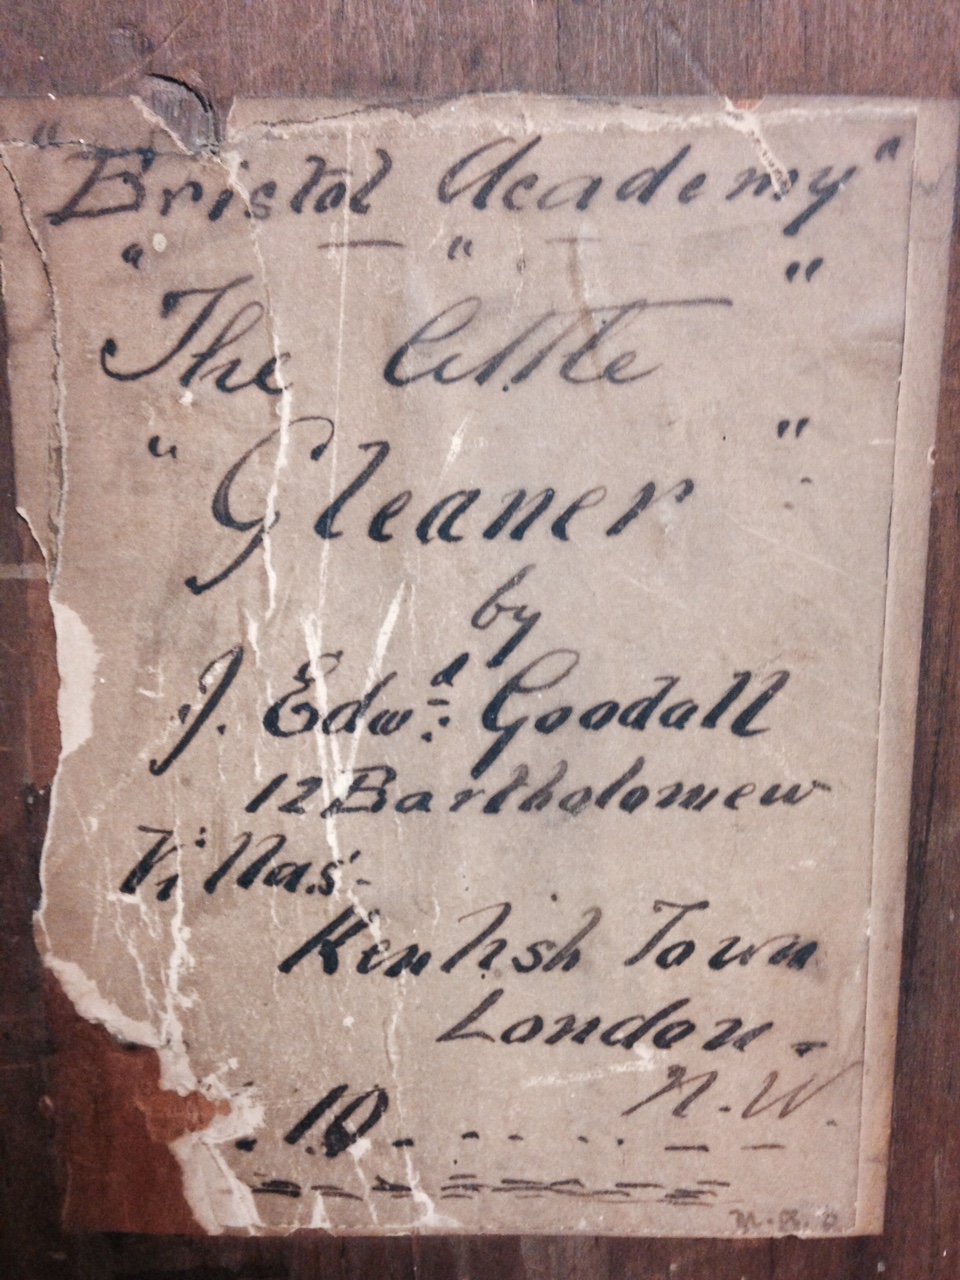 "Bristol Academy"
" — " — "
The little
" Gleaner "
by
J. Edwd: Goodall
12 Bartholomew
Villas-
Kentish Town
London -
N.W.
. 10 - - - - . . — —